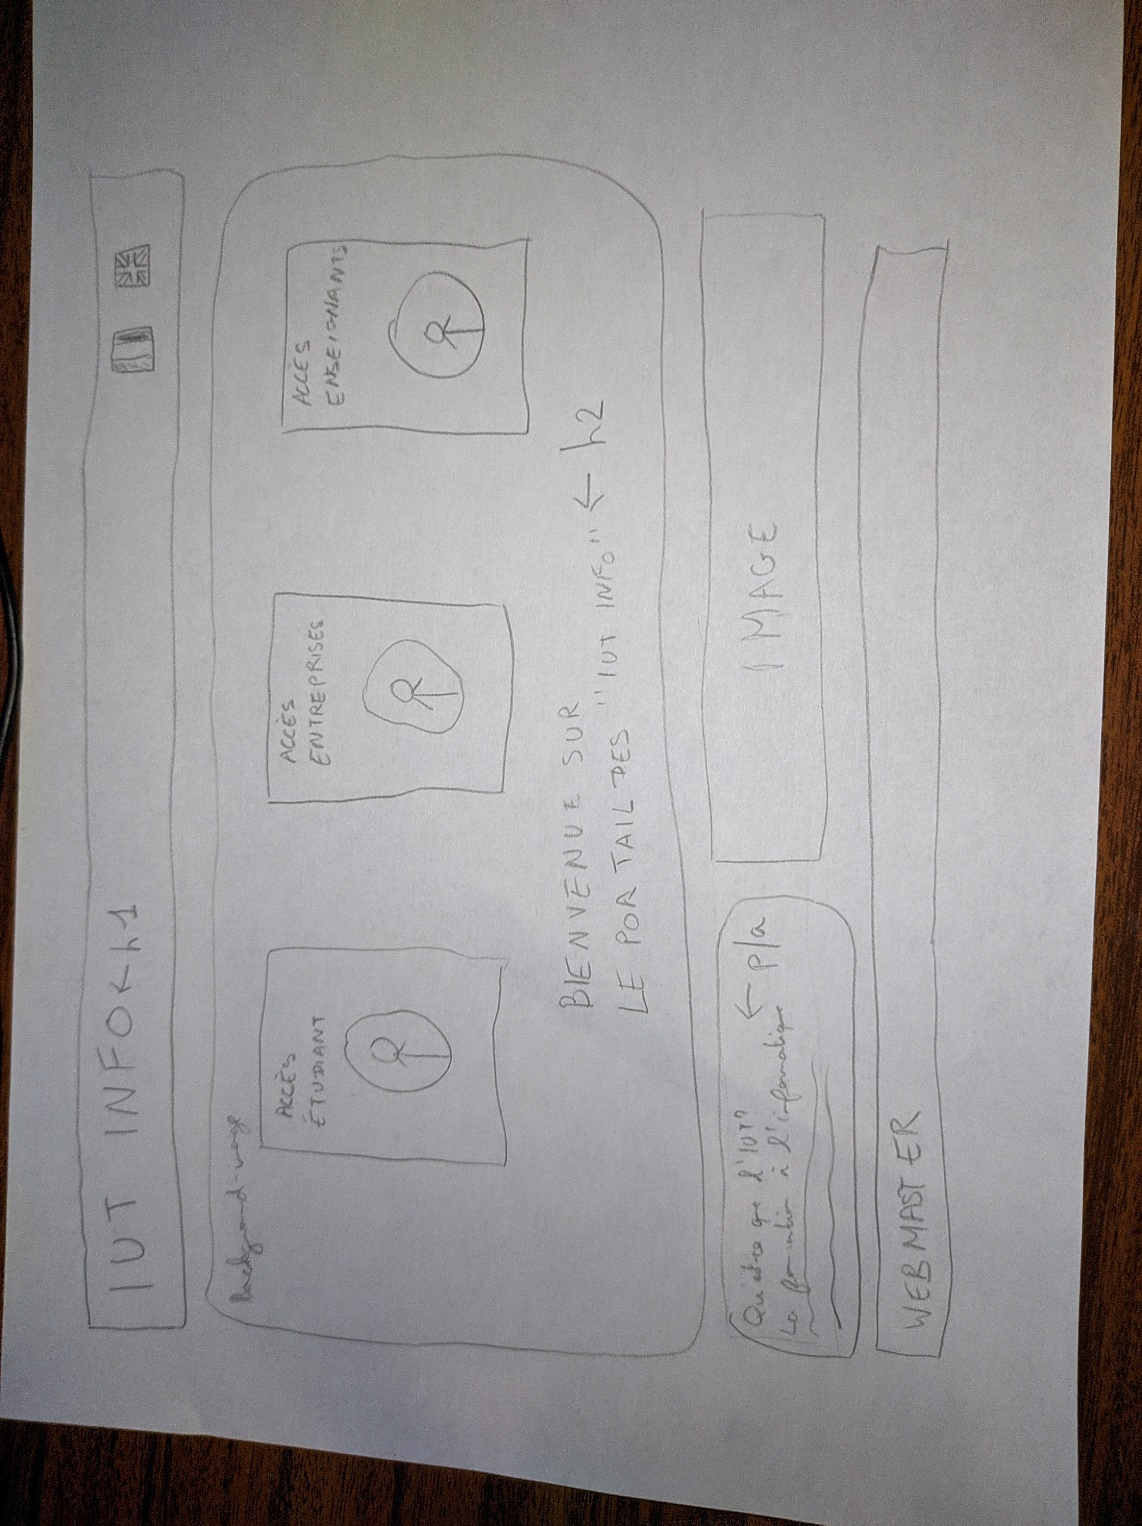 IUT INFO ← h1
Background-image
ACCÈS
ÉTUDIANT
ACCÈS
ENTREPRISES
ACCÈS
ENSEIGNANTS
BIENVENUE SUR
LE PORTAIL DES "IUT INFO" ← h2
Qu'est-ce que l'IUT?
La formation à l'informatique ← p/a
IMAGE
WEBMASTER